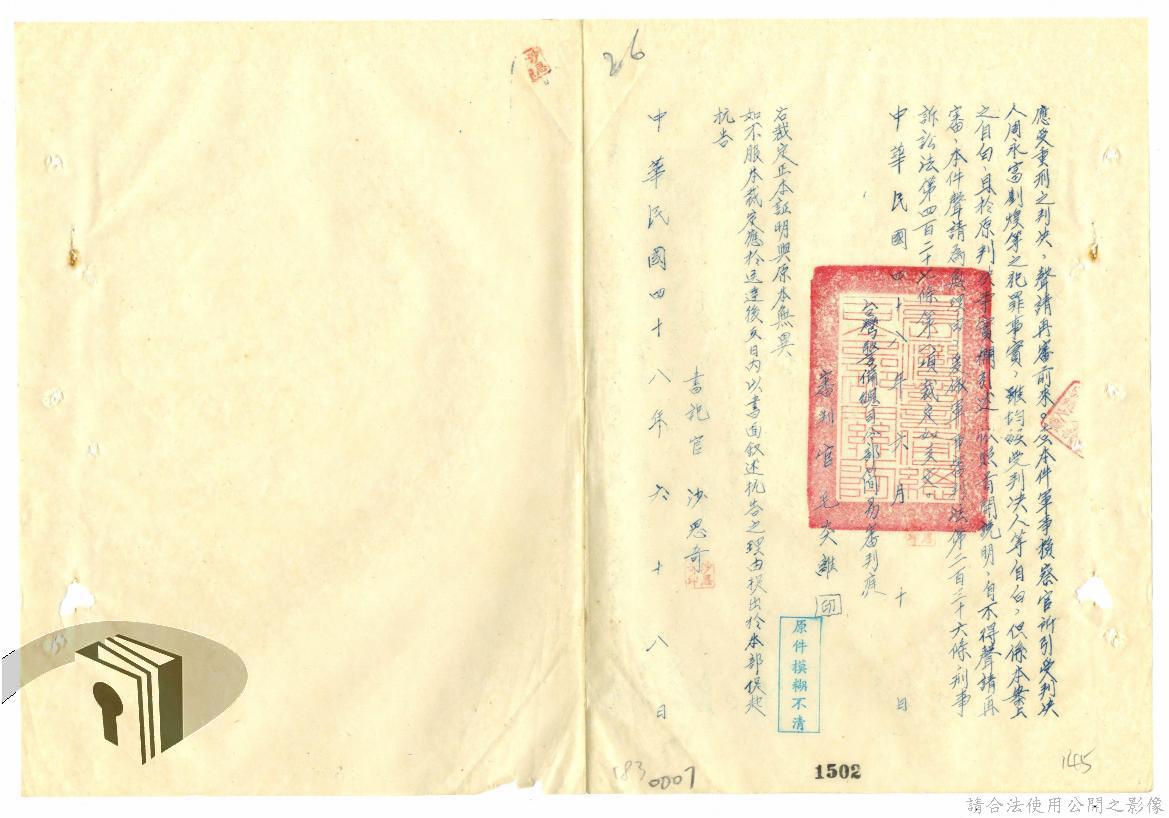 26
應受重刑之判決，聲請再審前來。查本件軍事檢察官所引受判決
人周永富劉煥等之犯罪事實，雖均經受判決人等自白，但係本案上
之自白，且於原判決事實欄引述，依照首開說明，自不得聲請再
審，本件聲請為無理由，爰依軍事審判法第二百三十六條刑事
訴訟法第四百二十七條第一項裁定如主文。
中華民國四十八年六月十日
台灣警備總司令部簡易審判庭
審判官毛炎離 印
右裁定正本証明與原本無異
如不服本裁定應於送達後五日內以書面敘述抗告之理由提出於本部提起
抗告
書記官 沙思奇
中華民國四十八年六十八日
原件模糊不清
183
0007
1502
145
請合法使用公開之影像